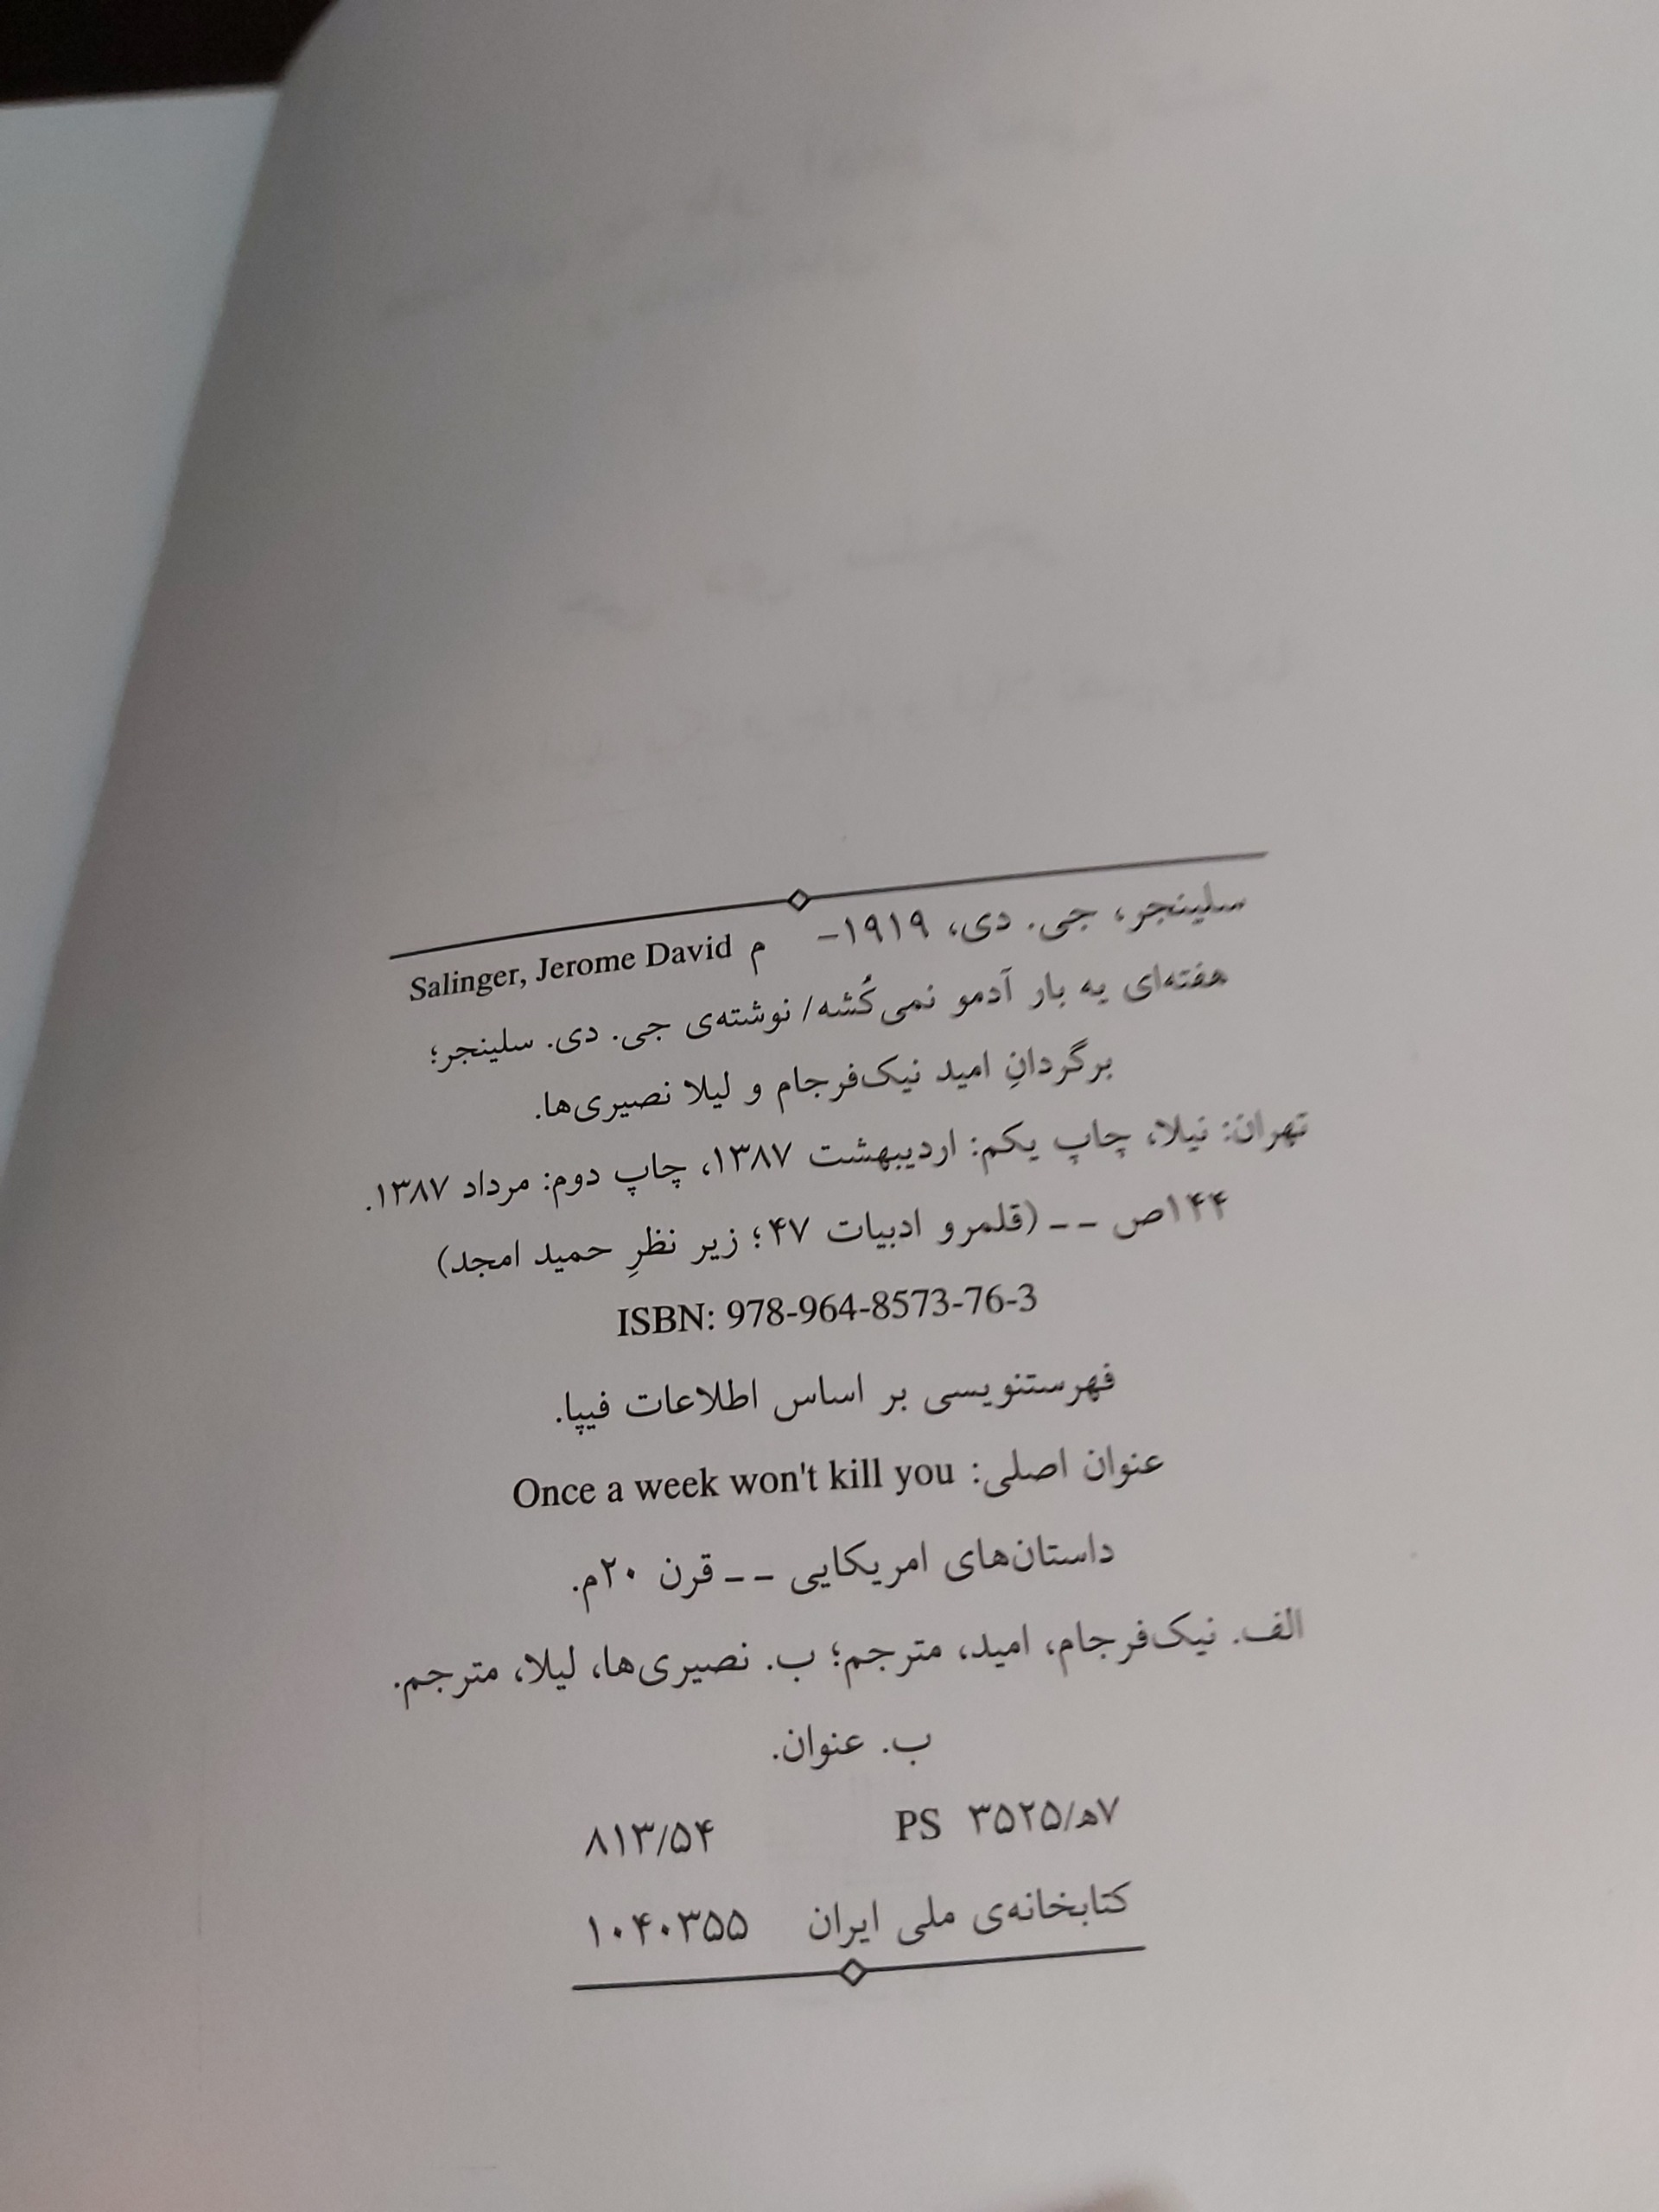 سلینجر، جی. دی، ۱۹۱۹– م Salinger, Jerome David
هفته‌ای یه بار آدمو نمی‌کُشه/ نوشته‌ی جی. دی. سلینجر؛
برگردانِ امید نیک‌فرجام و لیلا نصیری‌ها.
تهران: نیلا، چاپ یکم: اردیبهشت ۱۳۸۷، چاپ دوم: مرداد ۱۳۸۷.
۱۴۴ص ــ ــ (قلمرو ادبیات ۴۷؛ زیر نظرِ حمید امجد)
ISBN: 978-964-8573-76-3
فهرستنویسی بر اساس اطلاعات فیپا.
عنوان اصلی: Once a week won't kill you
داستان‌های امریکایی ــ ــ قرن ۲۰م.
الف. نیک‌فرجام، امید، مترجم؛ ب. نصیری‌ها، لیلا، مترجم.
ب. عنوان.
۷ھ/۳۵۲۵ PS ۸۱۳/۵۴
کتابخانه‌ی ملی ایران ۱۰۴۰۳۵۵